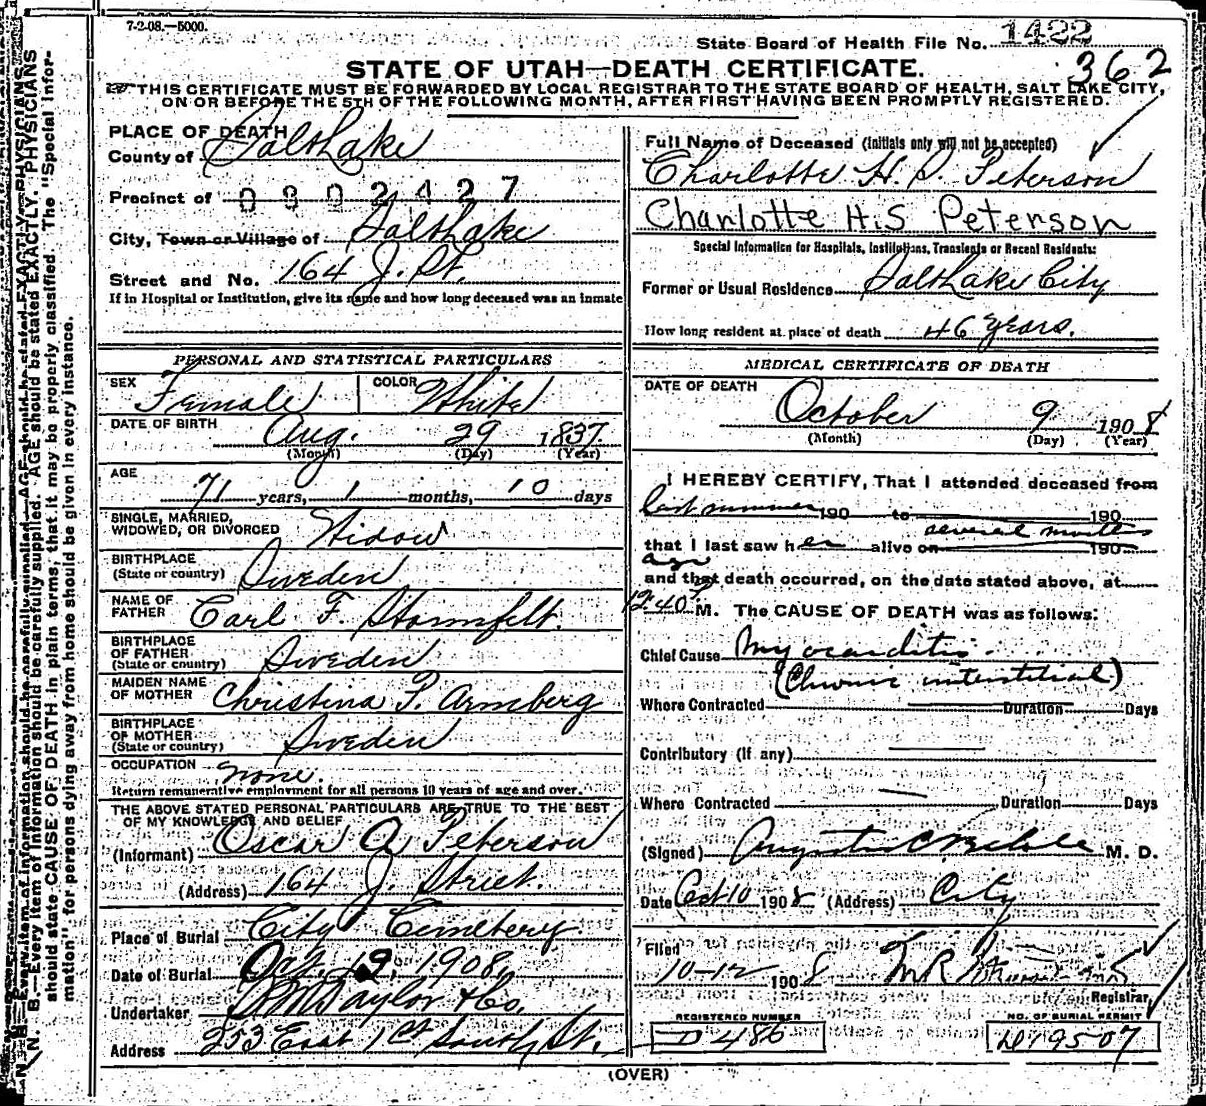 7-2-08.—5000.
State Board of Health File No. 1422
362
STATE OF UTAH—DEATH CERTIFICATE.
THIS CERTIFICATE MUST BE FORWARDED BY LOCAL REGISTRAR TO THE STATE BOARD OF HEALTH, SALT LAKE CITY,
ON OR BEFORE THE 5TH OF THE FOLLOWING MONTH, AFTER FIRST HAVING BEEN PROMPTLY REGISTERED.
PLACE OF DEATH
County of Salt Lake
Precinct of 0302427
City, Town or Village of Salt Lake
Street and No. 164 J. St.
If in Hospital or Institution, give its name and how long deceased was an inmate
PERSONAL AND STATISTICAL PARTICULARS
SEX Female COLOR White
DATE OF BIRTH Aug. 29 1837
(Month) (Day) (Year)
AGE
71 years, 1 months, 10 days
SINGLE, MARRIED,
WIDOWED, OR DIVORCED Widow
BIRTHPLACE
(State or country) Sweden
NAME OF
FATHER Carl F. Stormfelt.
BIRTHPLACE
OF FATHER
(State or country) Sweden
MAIDEN NAME
OF MOTHER Christina P. Armberg
BIRTHPLACE
OF MOTHER
(State or country) Sweden
OCCUPATION none.
Return remunerative employment for all persons 10 years of age and over.
THE ABOVE STATED PERSONAL PARTICULARS ARE TRUE TO THE BEST
OF MY KNOWLEDGE AND BELIEF
(Informant) Oscar A. Peterson
(Address) 164 J. Street.
Place of Burial City Cemetery
Date of Burial Oct. 1908.
Undertaker S.M. Taylor & Co.
Address 253 East 1st South St.
Full Name of Deceased (initials only will not be accepted)
Charlotte H. S. Peterson
Charlotte H.S Peterson
Special Information for Hospitals, Institutions, Transients or Recent Residents:
Former or Usual Residence Salt Lake City
How long resident at place of death 46 years.
MEDICAL CERTIFICATE OF DEATH
DATE OF DEATH
October 9 1908
(Month) (Day) (Year)
I HEREBY CERTIFY, That I attended deceased from
last summer 190 to 190
that I last saw her alive on several months 190
ago
and that death occurred, on the date stated above, at
12.40 P M. The CAUSE OF DEATH was as follows:
Chief Cause Myocarditis
(Chronic interstitial)
Where Contracted Duration Days
Contributory (If any)
Where Contracted Duration Days
(Signed) M. D.
Date Oct 10 1908 (Address) City
Filed
10-12 1908
Registrar
REGISTERED NUMBER
D 486
NO. OF BURIAL PERMIT
D19507
(OVER)
N. B.—Every item of information should be carefully supplied. AGE should be stated EXACTLY. PHYSICIANS
should state CAUSE OF DEATH in plain terms, that it may be properly classified. The "Special Infor-
mation" for persons dying away from home should be given in every instance.